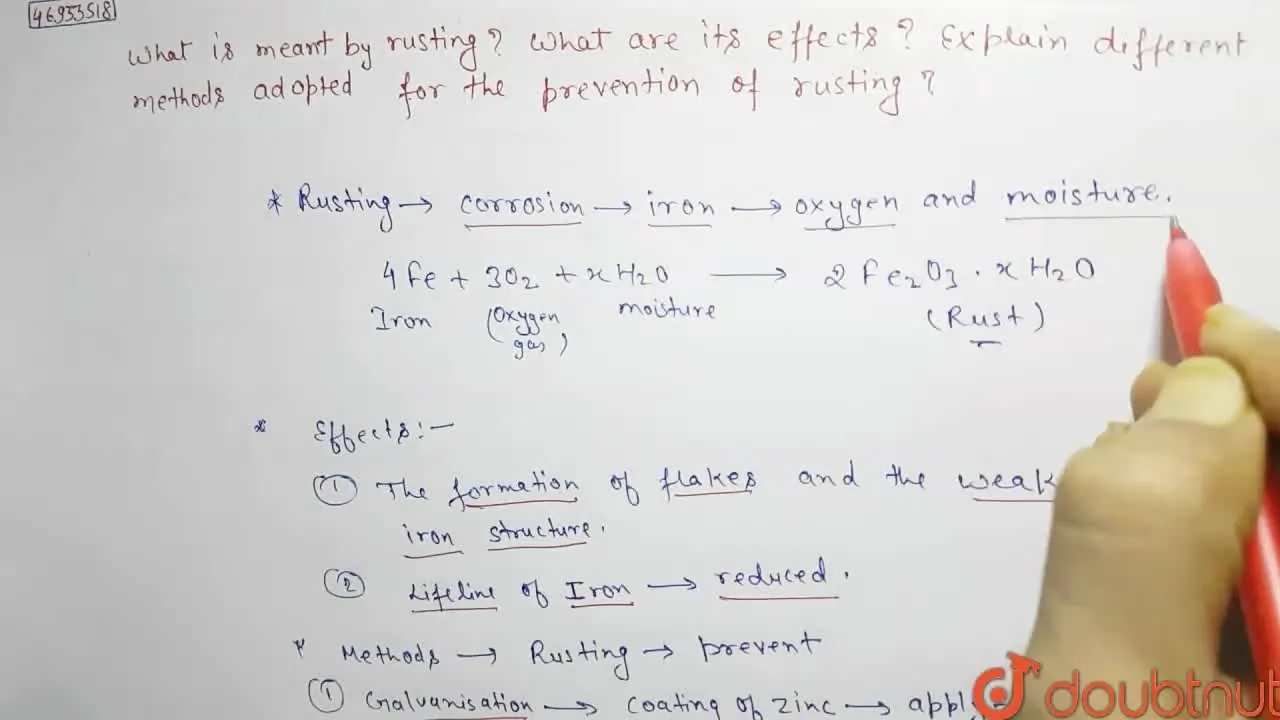 46935518
What is meant by rusting? What are its effects? Explain different
methods adopted for the prevention of rusting?
* Rusting → corrosion → iron → oxygen and moisture.
4Fe + 3O₂ + xH₂O → 2Fe₂O₃·xH₂O
Iron (Oxygen gas) moisture (Rust)
* Effects:-
① The formation of flakes and the weak
iron structure.
② Lifeline of Iron → reduced.
* Methods → Rusting → prevent
① Galvanisation → coating of zinc → apply
doubtnut